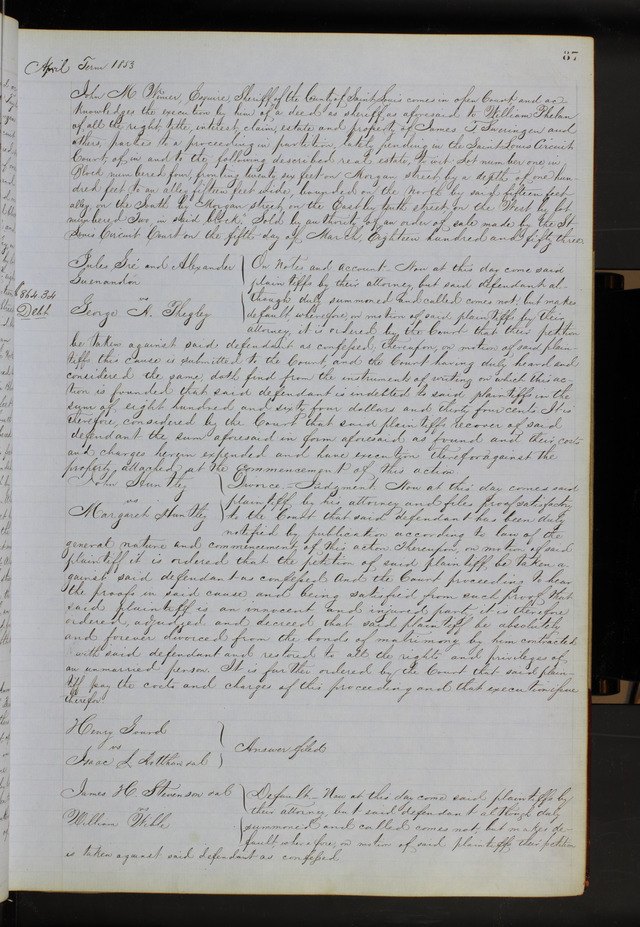 37
April Term 1853
John M Wimer, Esquire, Sheriff of the County of Saint Louis comes in open Court and ac-
knowledges the execution by him of a deed as sheriff as aforesaid to William Phelan
of all the right, title, interest, claim, estate and property of James T Swearingen and
others, parties to a proceeding in partition, lately pending in the Saint Louis Circuit
Court, of in and to the following described real estate, to wit: Lot number one in
Block numbered four, fronting twenty six feet on Morgan street, by a depth of one hun-
dred feet to an alley fifteen feet wide, bounded on the North by said fifteen feet
alley, on the South by Morgan street, on the East by tenth street, on the West by lot
numbered Two, in said block. Sold by authority of an order of sale made by the St
Louis Circuit Court on the fifth day of March, Eighteen hundred and fifty three
Jules and Alexander
vs
George H.
$864.34
Debt
On Notes and account. Now at this day come said
plaintiffs by their attorney, but said defendant al-
though duly summoned and called comes not, but makes
default, wherefore, on motion of said plaintiffs by their
attorney, it is ordered by the Court that their petition
be taken against said defendant as confessed, thereupon, on motion of said plain-
tiffs this cause is submitted to the Court, and the Court having duly heard and
considered the same, doth find from the instruments of writing on which this ac-
tion is founded that said defendant is indebted to said plaintiffs in the
sum of eight hundred and sixty four dollars and thirty four cents. It is
therefore, considered by the Court that said plaintiffs recover of said
defendant the sum aforesaid in form aforesaid as found and their costs
and charges herein expended and have execution therefor against the
property attached at the commencement of this action
John Huntley
vs
Margaret Huntley
Divorce. Judgment. Now at this day comes said
plaintiff by his attorney and files proof satisfactory
to the Court that said defendant has been duly
notified by publication according to law of the
general nature and commencement of this action. Thereupon, on motion of said
plaintiff it is ordered that the petition of said plaintiff be taken a-
gainst said defendant as confessed And the Court proceeding to hear
the proofs in said cause and being satisfied from such proof, that
said plaintiff is an innocent and injured party, it is therefore
ordered, adjudged and decreed that said plaintiff be absolutely
and forever divorced from the bonds of matrimony by him contracted
with said defendant and restored to all the rights and privileges of
an unmarried person. It is further ordered by the Court that said plain-
tiff pay the costs and charges of this proceeding and that execution issue
therefor.
Henry
vs
Isaac L
Answer filed
James H. Stevenson et al
vs
William
Default. Now at this day come said plaintiffs by
their attorney, but said defendant although duly
summoned and called comes not, but makes de-
fault, wherefore, on motion of said plaintiffs their petition
is taken against said defendant as confessed